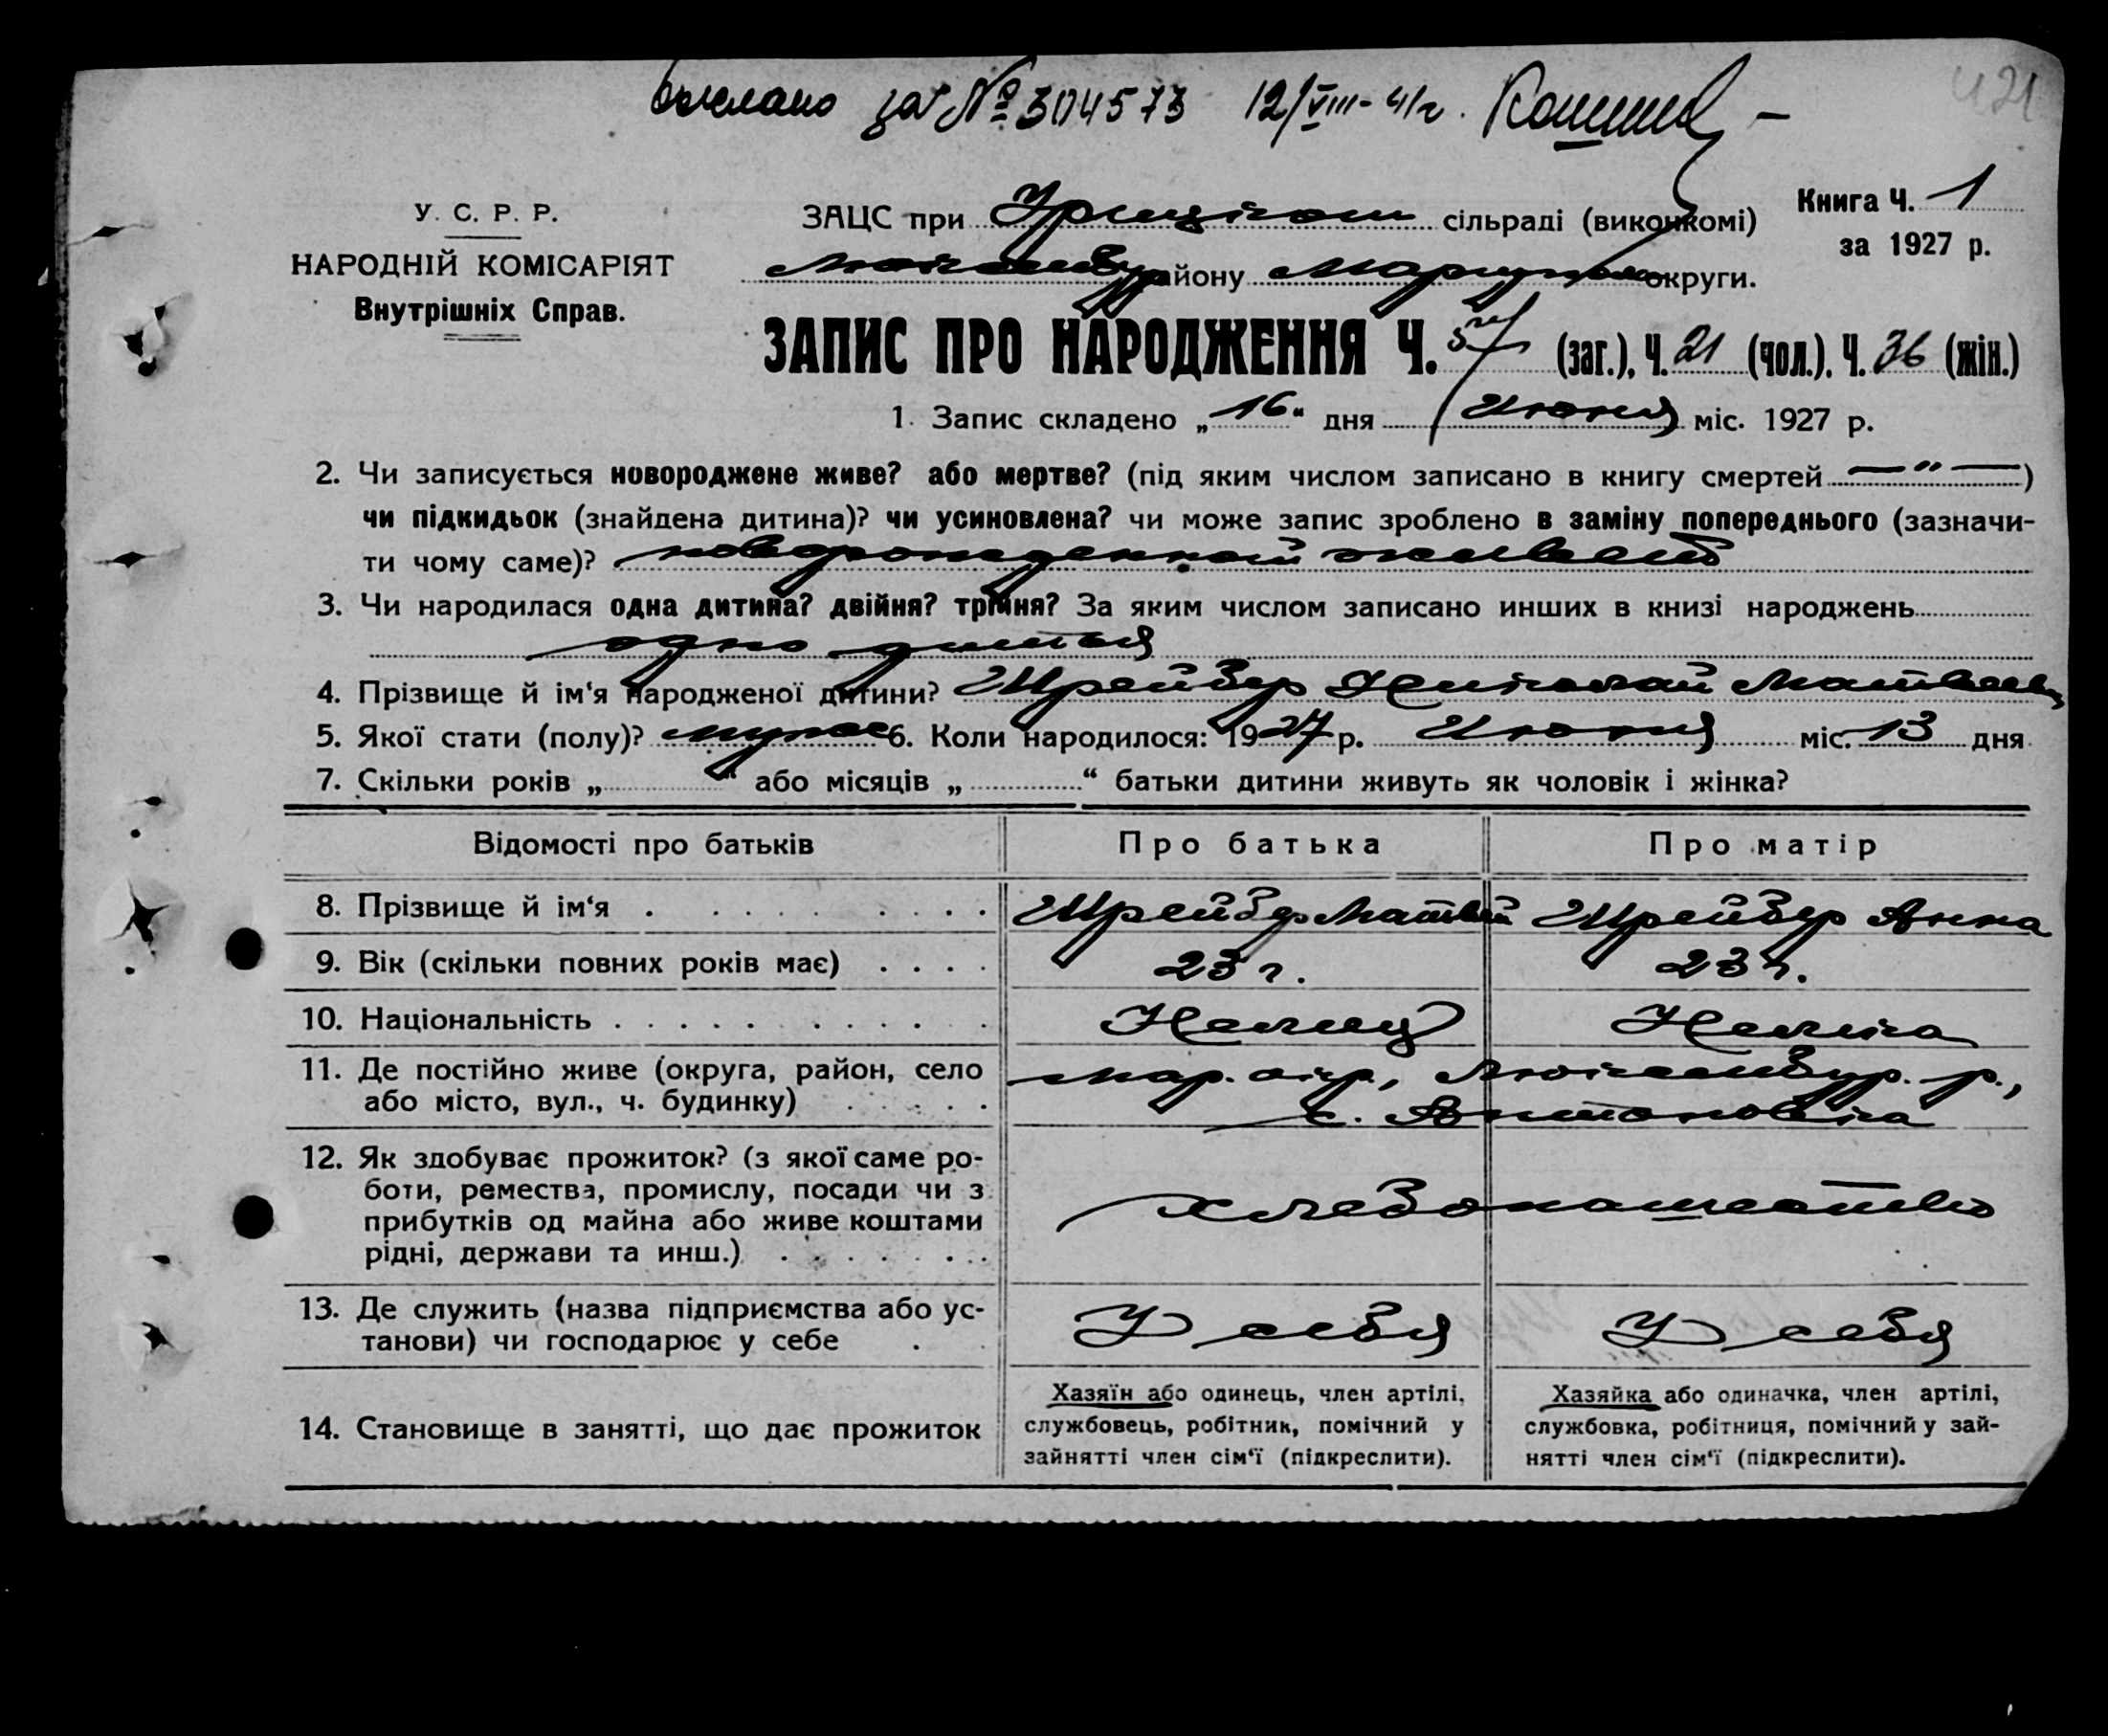 выслано за № 304573 12/VIII-41 г.
421
У. С. Р. Р.
НАРОДНІЙ КОМІСАРІЯТ
Внутрішніх Справ.
ЗАЦС при Урицком сільраді (виконкомі)
Люксембур району Мариупол округи.
Книга Ч. 1
за 1927 р.
ЗАПИС ПРО НАРОДЖЕННЯ Ч. 57 (заг.), Ч. 21 (чол.), Ч. 36 (жін.)
1. Запис складено „16“ дня Июня міс. 1927 р.
2. Чи записується новороджене живе? або мертве? (під яким числом записано в книгу смертей — " —)
чи підкидьок (знайдена дитина)? чи усиновлена? чи може запис зроблено в заміну попереднього (зазначи-
ти чому саме)? новорожденной живет
3. Чи народилася одна дитина? двійня? трійня? За яким числом записано инших в книзі народжень
одно дитья
4. Прізвище й ім‘я народженої дитини? Шрейбер Николай Матвеев
5. Якої стати (полу)? мужс 6. Коли народилося: 1927 р. Июня міс. 13 дня
7. Скільки років „ “ або місяців „ “ батьки дитини живуть як чоловік і жінка?
Відомості про батьків Про батька Про матір
8. Прізвище й ім‘я Шрейбер Матвей Шрейбер Анна
9. Вік (скільки повних років має) 23 г. 23 г.
10. Національність Немец Немка
11. Де постійно живе (округа, район, село Мар. окр., Люксембур. р.,
або місто, вул., ч. будинку) с. Антоновка
12. Як здобуває прожиток? (з якої саме ро-
боти, ремества, промислу, посади чи з
прибутків од майна або живе коштами
рідні, держави та инш.) хлебопашество
13. Де служить (назва підприємства або ус-
танови) чи господарює у себе У себя У себя
14. Становище в занятті, що дає прожиток
Хазяїн або одинець, член артілі,
службовець, робітник, помічний у
зайнятті член сім‘ї (підкреслити).
Хазяйка або одиначка, член артілі,
службовка, робітниця, помічний у зай-
нятті член сім‘ї (підкреслити).